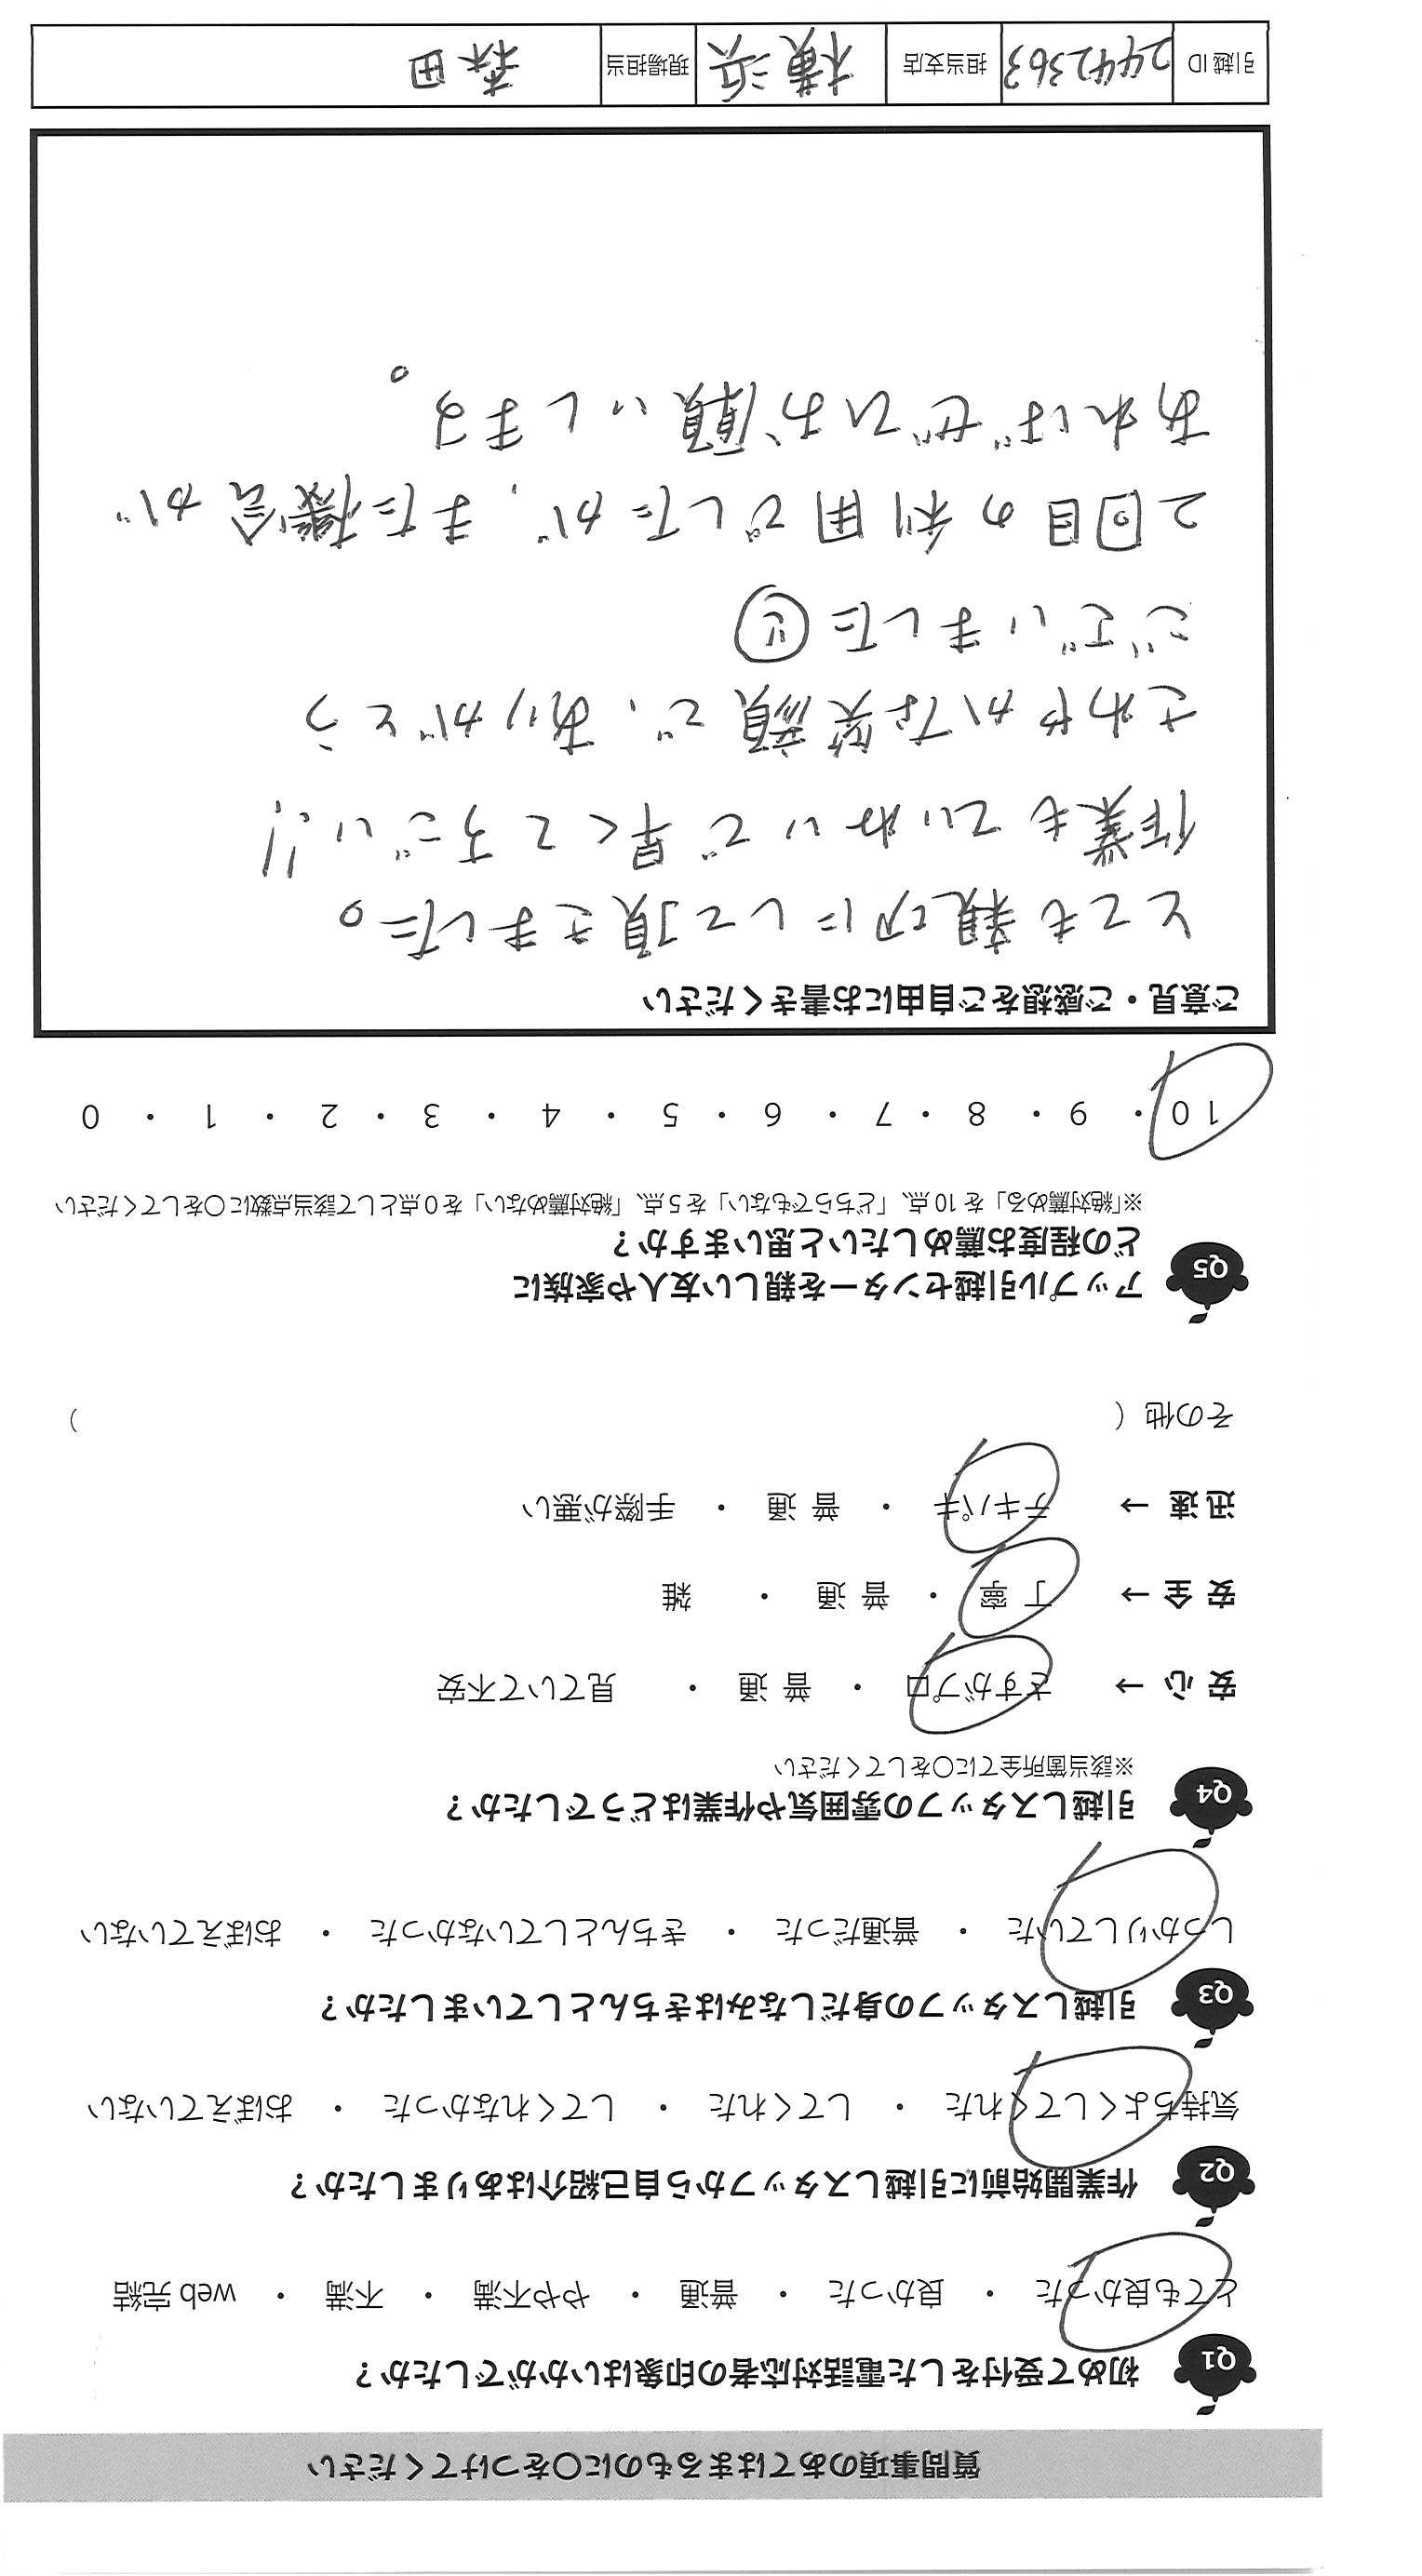 質問事項のあてはまるものに○をつけてください
Q1 初めて受付をした電話対応者の印象はいかがでしたか？
とても良かった ・ 良かった ・ 普通 ・ やや不満 ・ 不満 ・ web 完結
Q2 作業開始前に引越しスタッフから自己紹介はありましたか？
気持ちよくしてくれた ・ してくれた ・ してくれなかった ・ おぼえていない
Q3 引越しスタッフの身だしなみはきちんとしていましたか？
しっかりしていた ・ 普通だった ・ きちんとしていなかった ・ おぼえていない
Q4 引越しスタッフの雰囲気や作業はどうでしたか？
※該当箇所全てに○をしてください
安 心 → さすがプロ ・ 普 通 ・ 見ていて不安
安 全 → 丁 寧 ・ 普 通 ・ 雑
迅 速 → テキパキ ・ 普 通 ・ 手際が悪い
その他 （ ）
Q5 アップル引越センターを親しい友人や家族に
どの程度お薦めしたいと思いますか？
※「絶対薦める」を 10 点、「どちらでもない」を 5 点、「絶対薦めない」を 0 点として該当点数に○をしてください
10 ・ 9 ・ 8 ・ 7 ・ 6 ・ 5 ・ 4 ・ 3 ・ 2 ・ 1 ・ 0
ご意見・ご感想をご自由にお書きください
とても親切にして頂きました。
作業もていねいで早くてすごい!!
さわやかな笑顔で、ありがとう
ございました
2回目の利用でしたが、また機会が
あればぜひお願いします。
引越 ID 2442363 担当支店 横浜 現場担当 森田